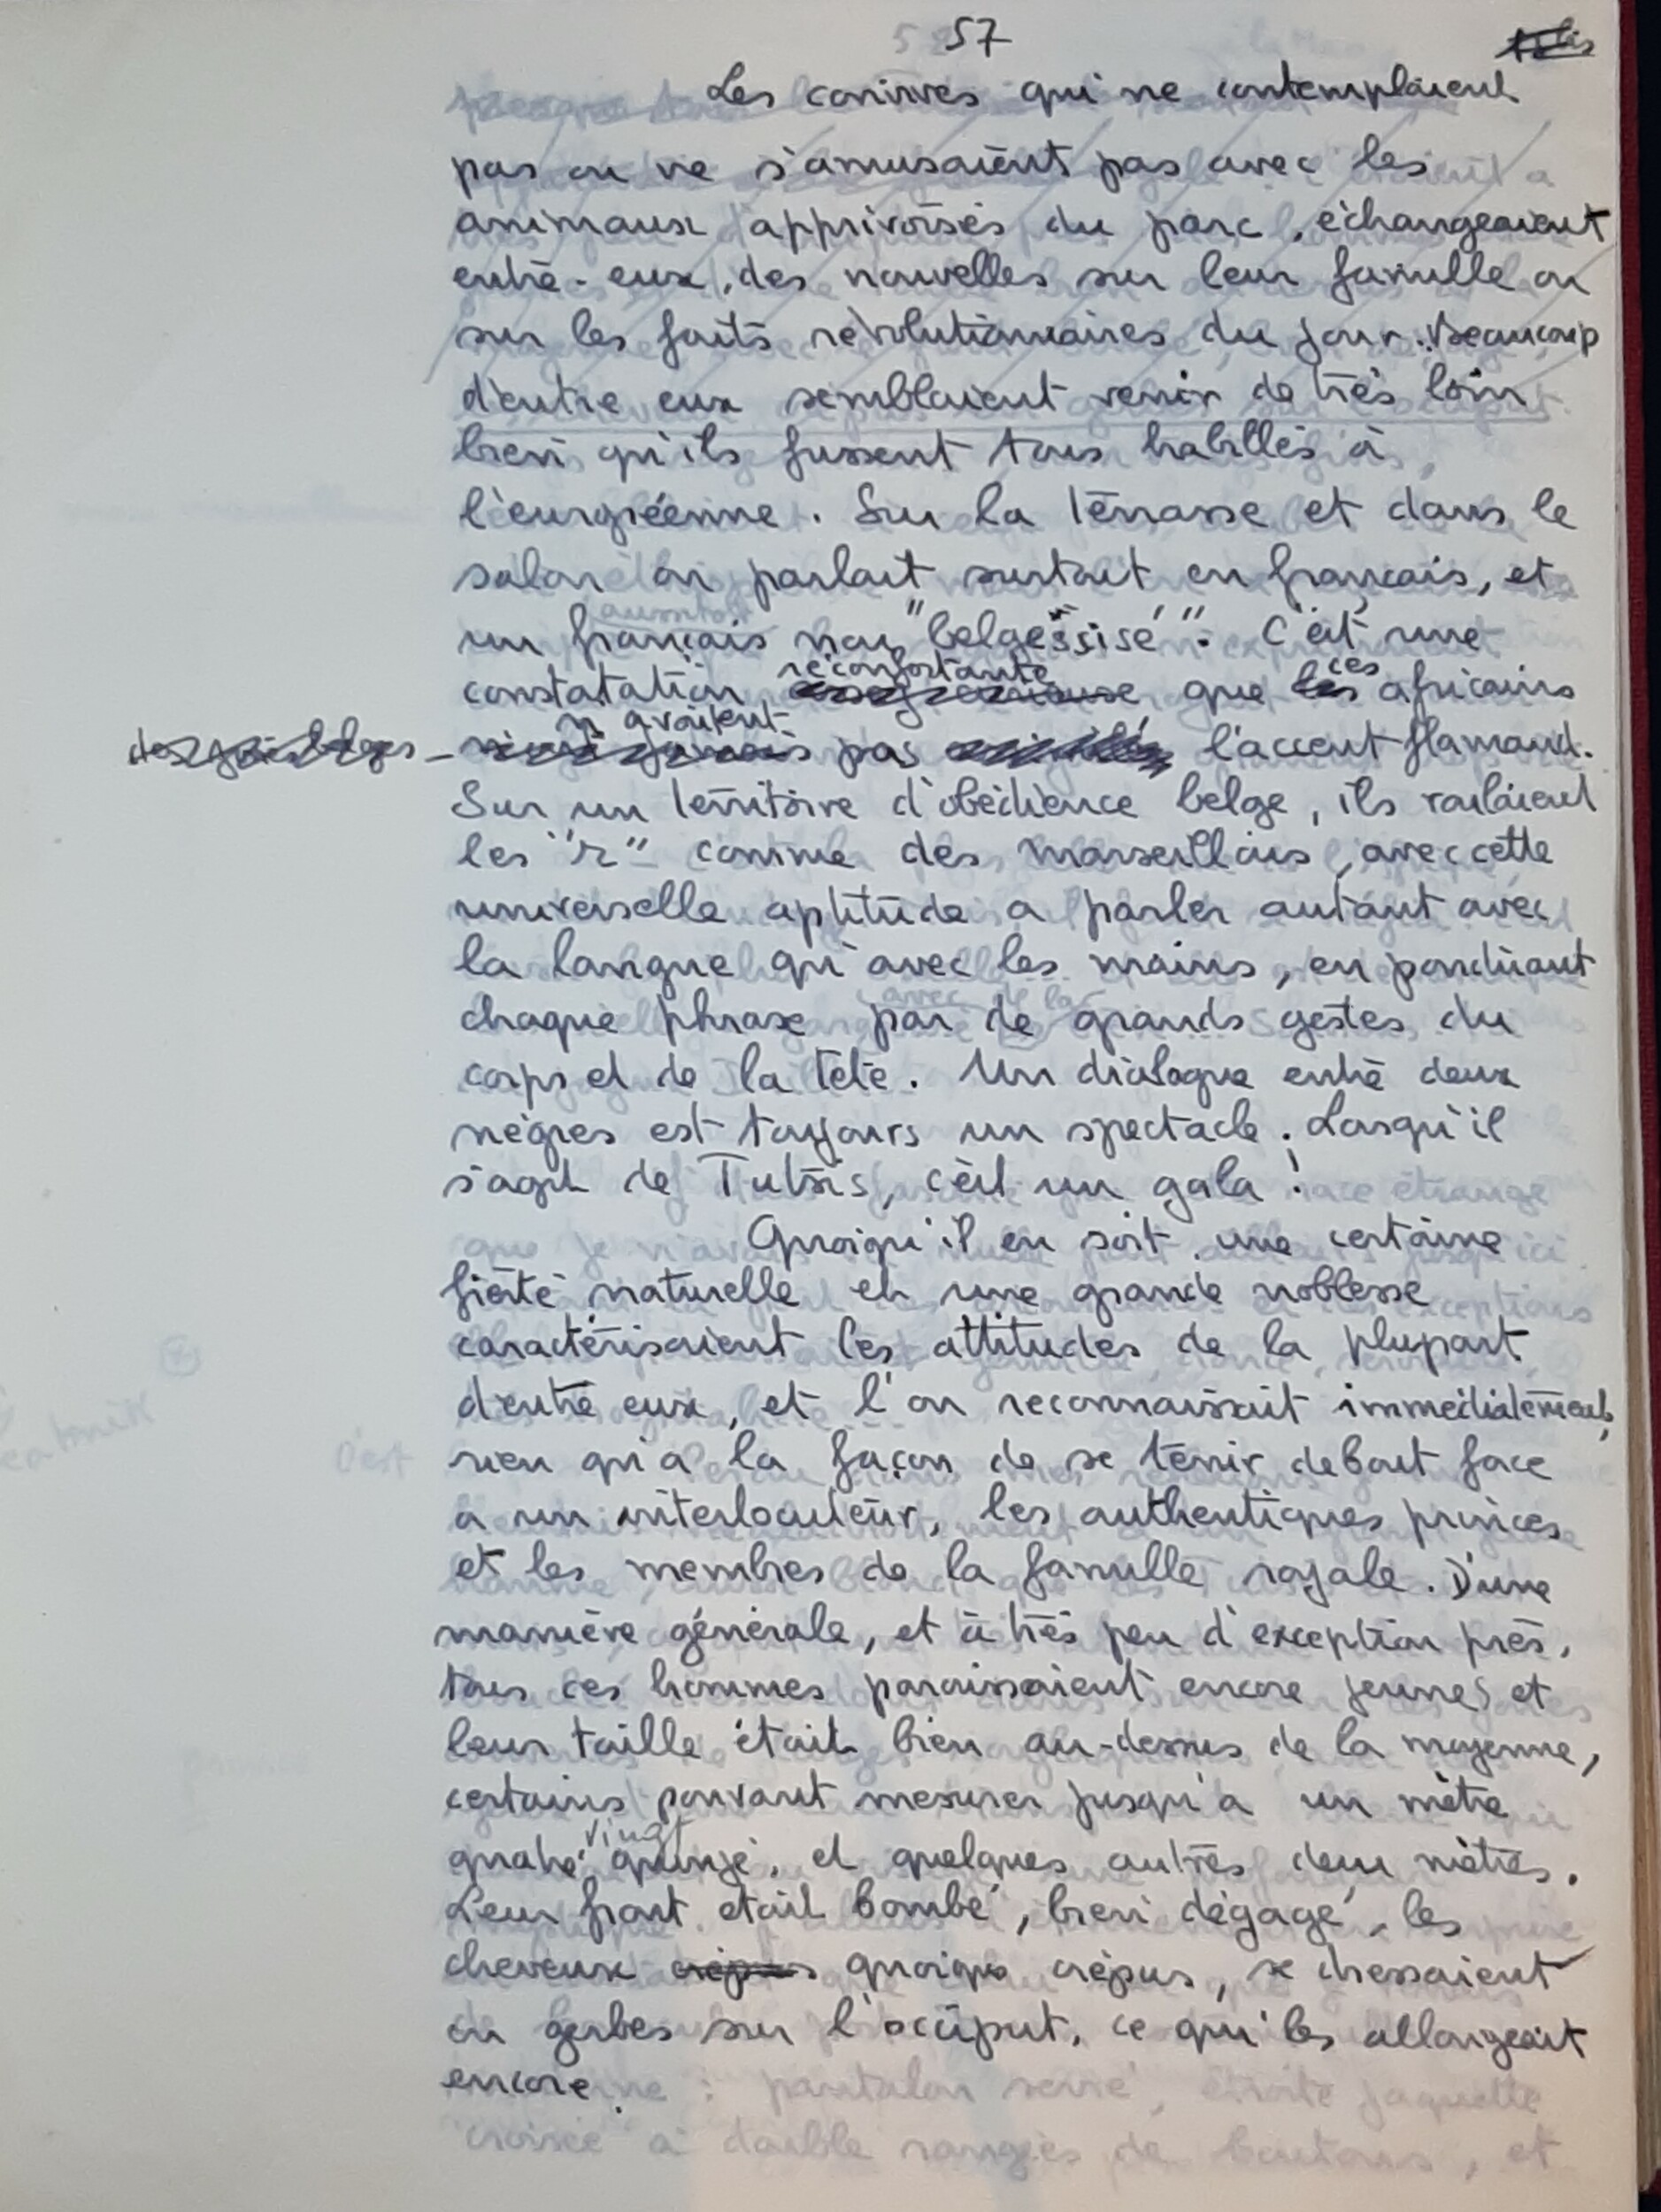 57
Les convives qui ne contemplaient
pas ou ne s'amusaient pas avec les
animaux apprivoisés du parc, échangeaient
entre-eux, des nouvelles sur leur famille ou
sur les faits révolutionnaires du jour. Beaucoup
d'entre eux semblaient venir de très loin
bien qu'ils fussent tous habillés à
l'européenne. Sur la terrasse et dans le
salon on parlait surtout en français, et
un français non "belgessisé". C'est une
constatation réconfortante que ces africains
n'avaient pas l'accent flamand.
Sur un territoire d'obédience belge, ils roulaient
les "r" comme des marseillais, avec cette
universelle aptitude a parler autant avec
la langue qu'avec les mains, en ponctuant
chaque phrase par de grands gestes du
corps et de la tête. Un dialogue entre deux
nègres est toujours un spectacle. Lorsqu'il
s'agit de Tutsis, c'est un gala !
Quoiqu'il en soit, une certaine
fierté naturelle et une grande noblesse
caractérisaient les attitudes de la plupart
d'entre eux, et l'on reconnaissait immédiatement,
rien qu'à la façon de se tenir debout face
à un interlocuteur, les authentiques princes
et les membres de la famille royale. D'une
manière générale, et à très peu d'exception près,
tous ces hommes paraissaient encore jeunes et
leur taille était bien au-dessus de la moyenne,
certains pouvant mesurer jusqu'à un mètre
quatre vingt quinze, et quelques autres deux mètres.
Leur front était bombé, bien dégagé, les
cheveux crépus quoique crépus, se dressaient
en gerbes sur l'occiput, ce qui les allongeait
encore.